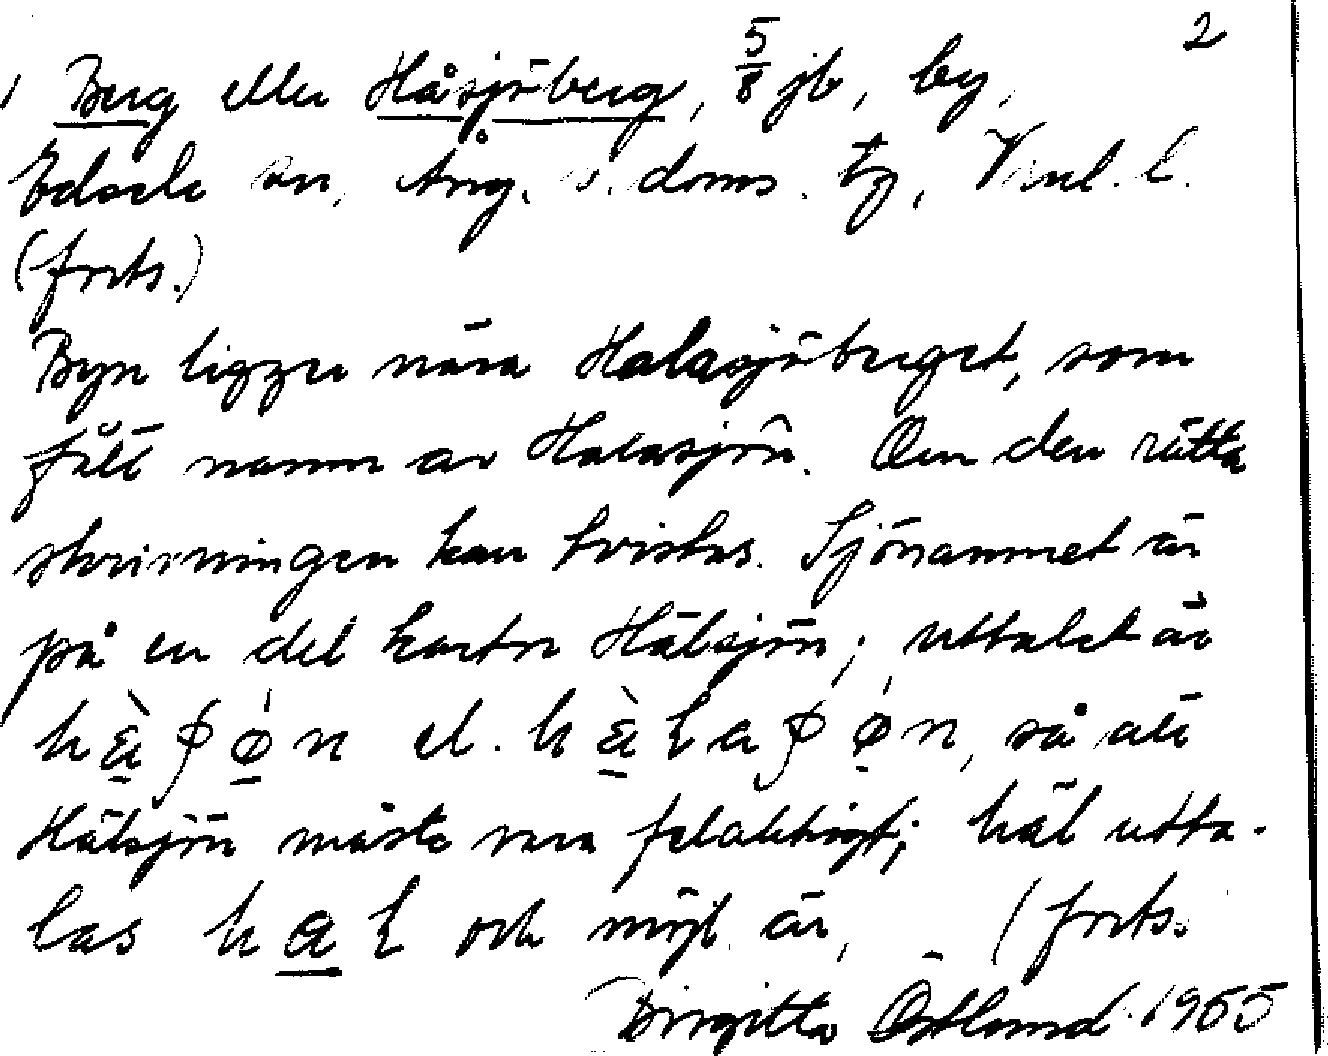 2
1 Berg eller Håsjöberg, 5/8 jb, by,
Edsele sn, Ång. v. doms. tg, Vnl. l.
(forts.)
Byn ligger nära Halasjöberget, som
fått namn av Halasjön. Om den rätta
skrivningen kan tvistas. Sjönamnet är
på en del kartor Hälsjön; uttalet är
el. så att
Hälsjön måste vara felaktigt; häl utta-
las och möjl. är, (forts.
Birgitta Östlund 1965